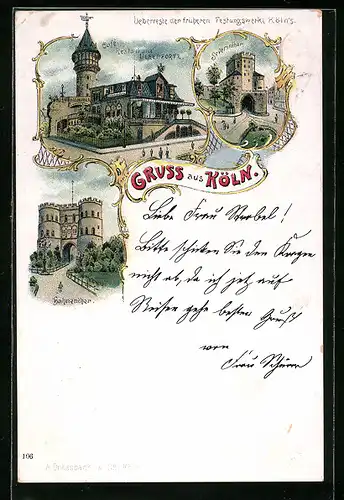 Ueberreste der früheren Festungswerke Köln's.
Café
Restaurant
Severinthor.
GRUSS aus KÖLN.
Hahnenthor.
Liebe Frau Strobel!
Bitte schicken Sie den Kragen
nicht ab, da ich jetzt auf
Reisen gehe besten Gruß
von
Frau
106